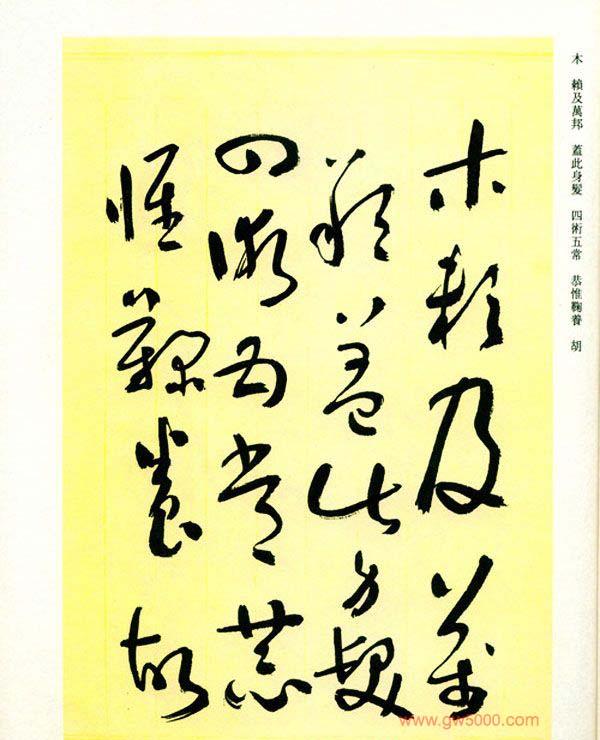 木 賴及萬邦 蓋此身髮 四術五常 恭惟鞠養 胡
木賴及萬
邦蓋此身髮
四術五常恭
惟鞠養胡
www.gw5000.com